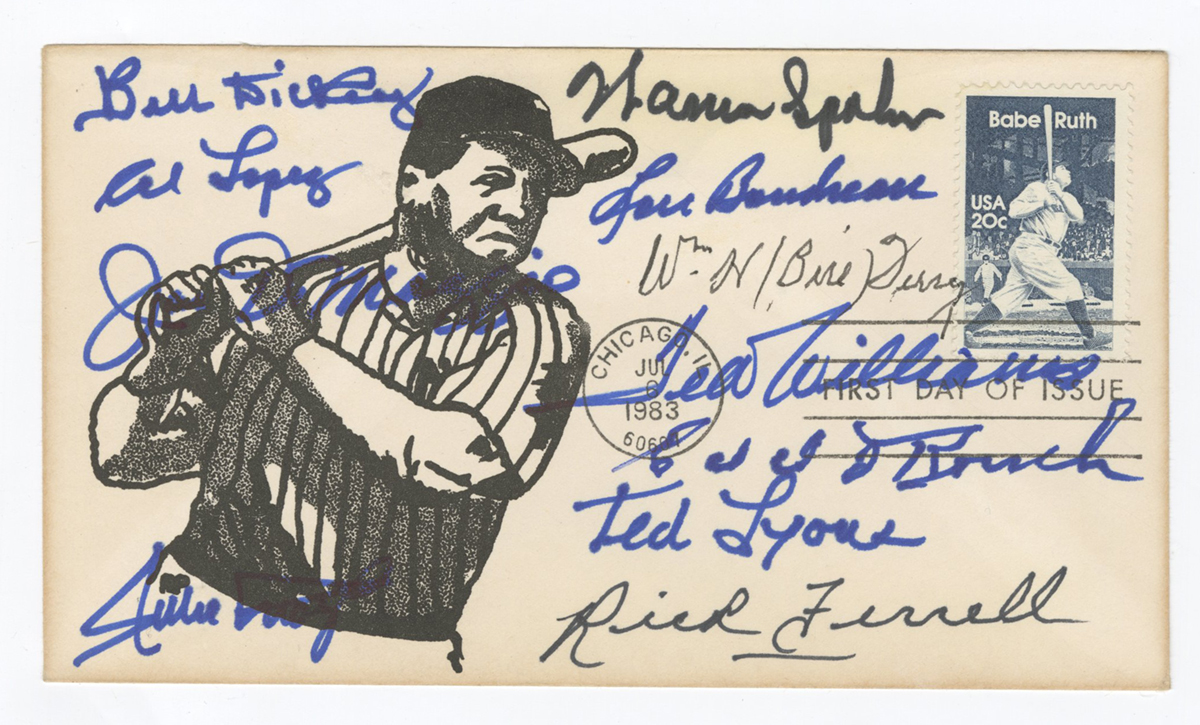 Bill Dickey
Al Lopez
Joe DiMaggio
Willie Mays
Warren Spahn
Lou Boudreau
Wm H (Bill) Terry
Ted Williams
Edd J Roush
Ted Lyons
Rick Ferrell
Babe Ruth
USA
20c
CHICAGO, IL
JUL
6
1983
FIRST DAY OF ISSUE